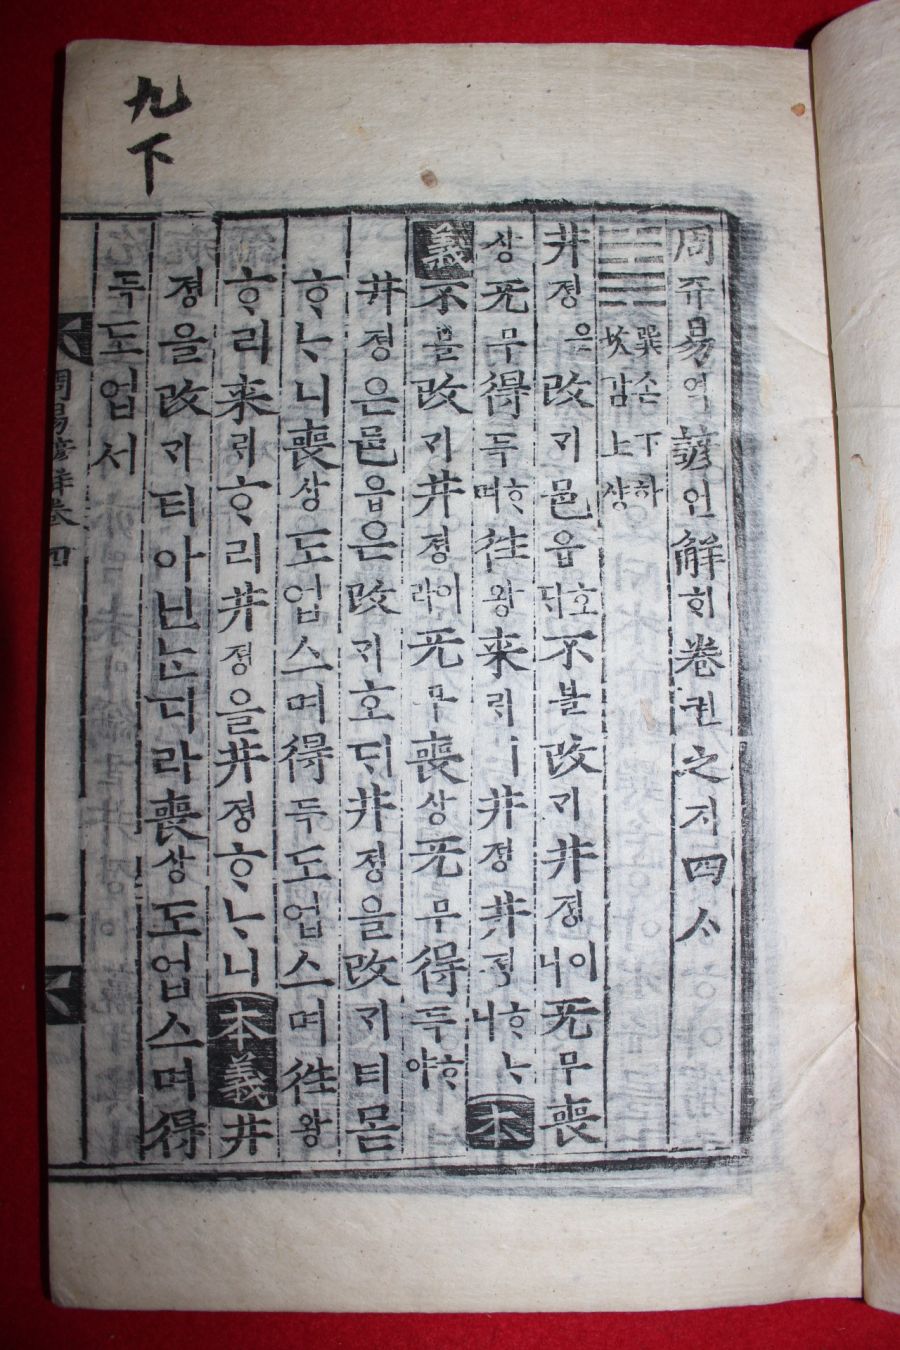 九下
周쥬易역諺언解ᄒᆡ卷권之지四ᄉᆞ
巽손下하
坎감上상
井졍은改ᄀᆡ邑읍호ᄃᆡ不블改ᄀᆡ井졍이니无무喪
상无무得득ᄒᆞ며往왕来ᄅᆡㅣ井졍井졍ᄒᆞᄂᆞ니本
義不블改ᄀᆡ井졍이라无무喪상无무得득ᄒᆞ야
井졍은邑읍은改ᄀᆡ호ᄃᆡ井졍을改ᄀᆡ티몯
ᄒᆞᄂᆞ니喪상도업스며得득도업스며徃왕
ᄒᆞ리来ᄅᆡᄒᆞ리井졍을井졍ᄒᆞᄂᆞ니本義井
졍을改ᄀᆡ티아닌ᄂᆞᆫ디라喪상도업스며得
득도업서
周易諺解卷四
一